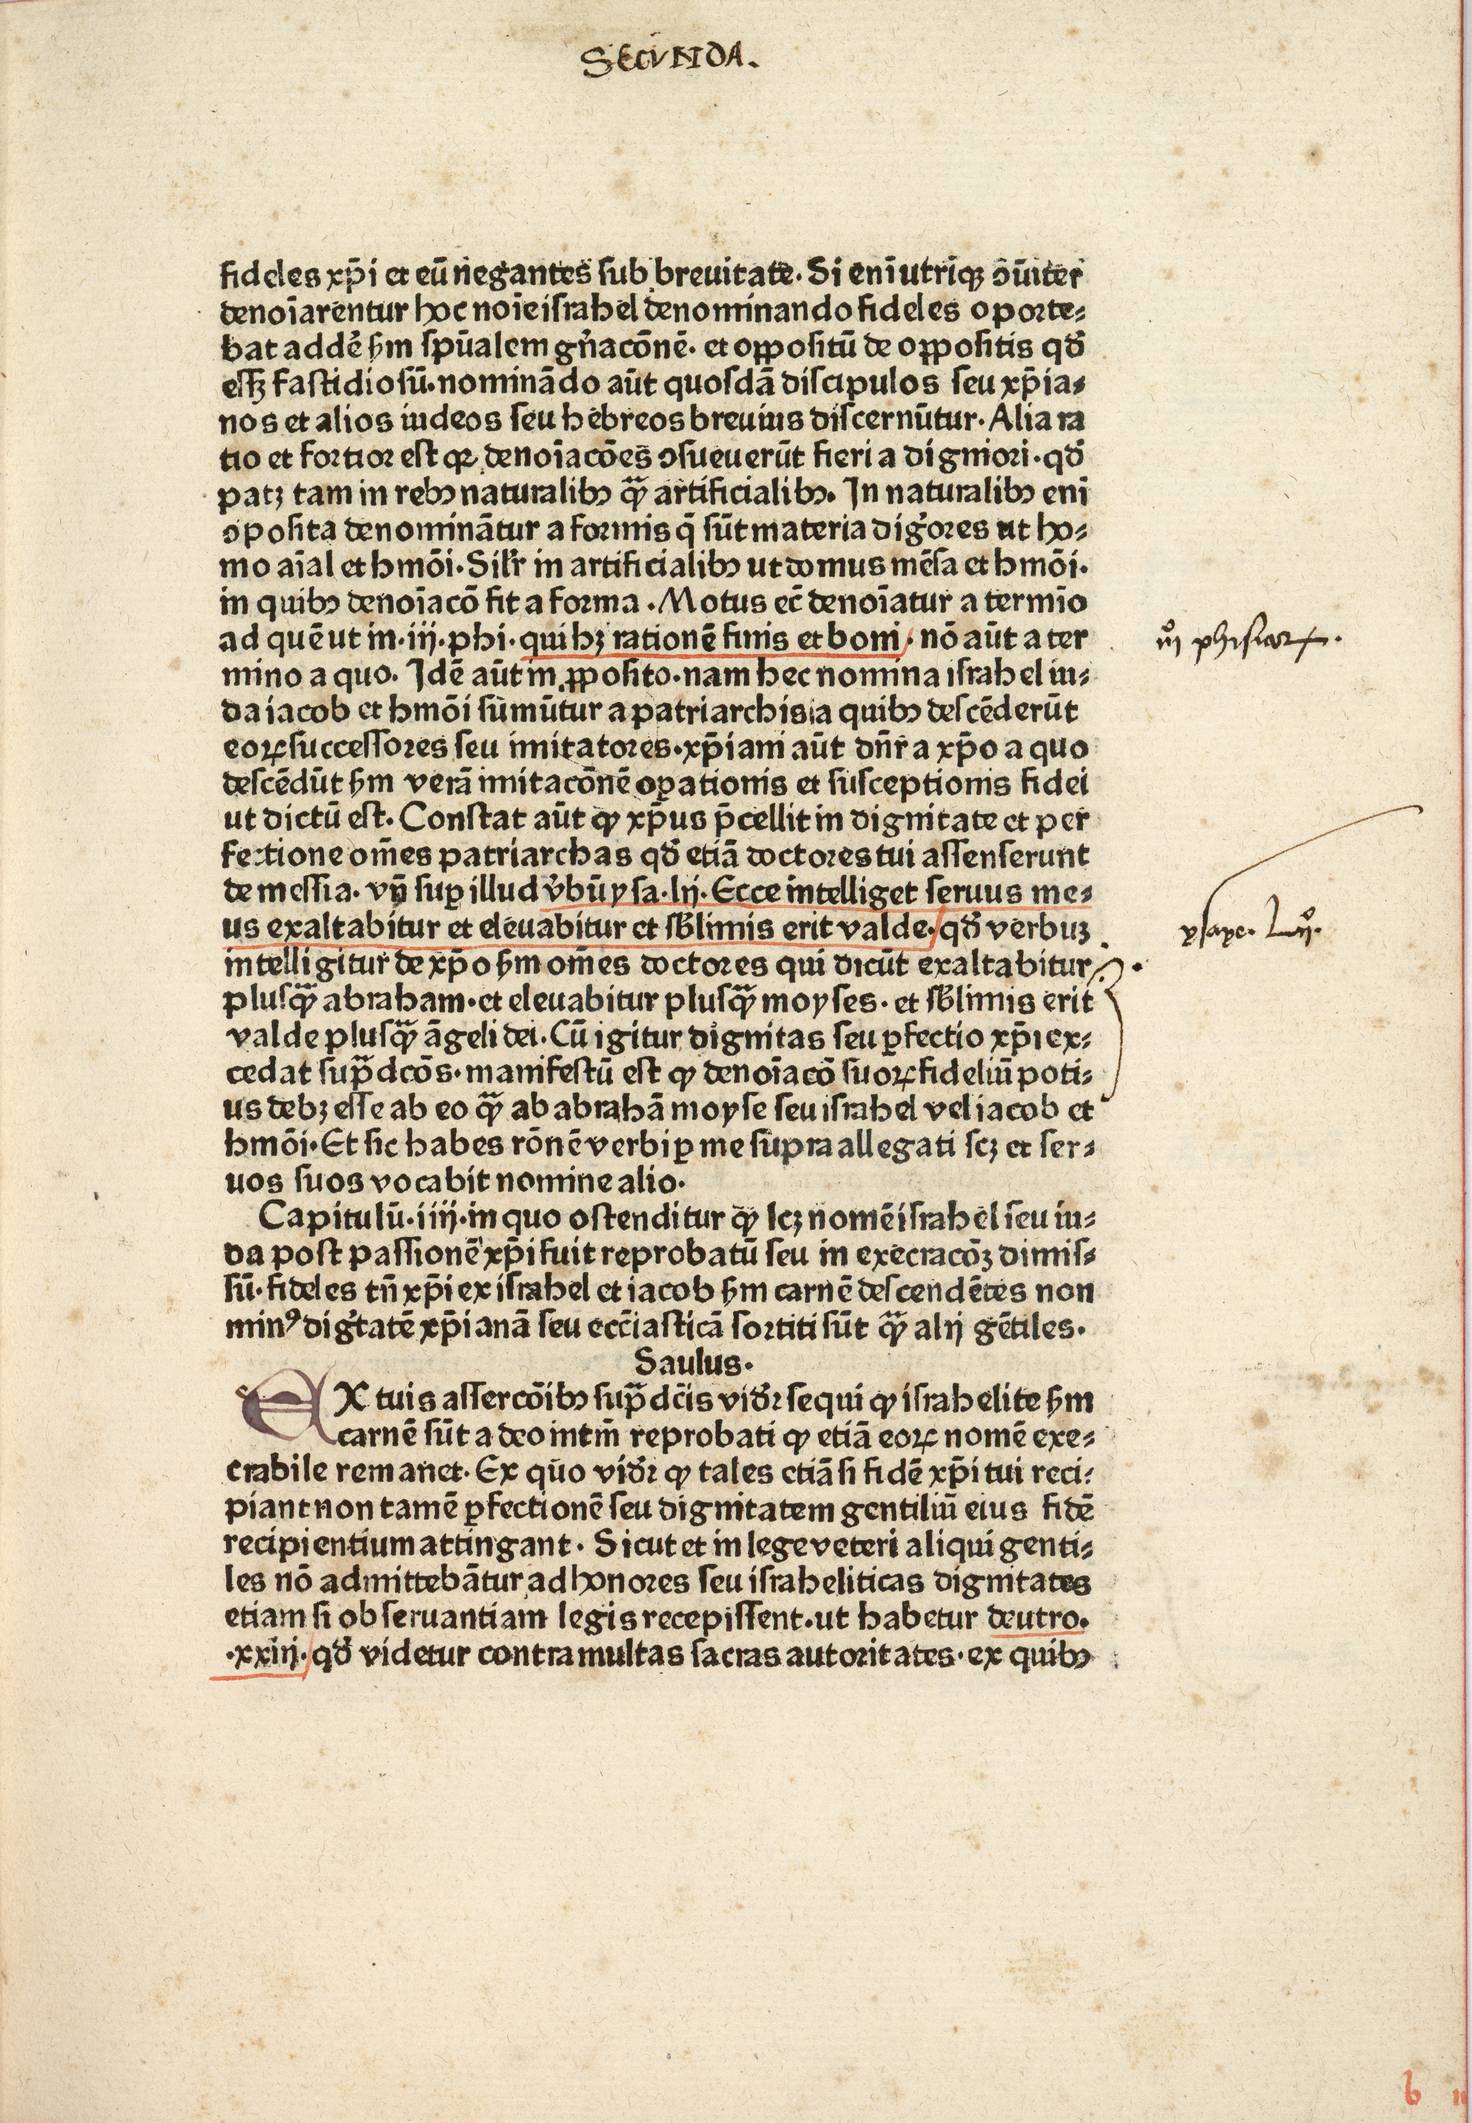 SECUNDA.
fideles xp̄i et eū negantes sub breuitate. Si eni utriqꝫ ꝯ̄uiter
denoīarentur hoc noīe israhel denominando fideles oporte⸗
bat addē ẜm spūalem gn̄acōnē. et oppositū de oppositis qđ
esꝫ fastidiosū. nominādo aūt quosdā discipulos seu xp̄ia⸗
nos et alios iudeos seu hebreos breuius discernūtur. Alia ra
tio et fortior est qꝛ denoīacōes ꝯsueuerūt fieri a digniori. qđ
patꝫ tam in rebꝰ naturalibꝰ qᷓ artificialibꝰ. In naturalibꝰ enī
ꝯposita denominātur a formis q̄ sūt materia dig̍ores ut ho⸗
mo aīal et hmōi. Silr̄ in artificialibꝰ ut domus mēsa et hmōi.
in quibꝰ denoīacō fit a forma. Motus ec̄ denoīatur a termīo
ad quē ut in .iij. phi. qui hꝫ rationē finis et boni. nō aūt a ter
mino a quo. Idē aūt in ꝓposito. nam hec nomina israhel iu⸗
da iacob et hmōi sūmūtur a patriarchis a quibꝰ descēderūt
eoꝝ successores seu imitatores. xp̄iani aūt dn̄r a xp̄o a quo
descēdūt ẜm verā imitacōnē oꝑationis et susceptionis fidei
ut dictū est. Constat aūt ꝙ xp̄us p̄cellit in dignitate et per
fectione om̄es patriarchas qđ etiā doctores tui assenserunt
de messia. vn̄ suꝑ illud v̄bū ysa. lij. Ecce intelliget seruus me⸗
us exaltabitur et eleuabitur et sƀlimis erit valde. qđ verbuꝫ
intelligitur de xp̄o ẜm om̄es doctores qui dicūt exaltabitur
plusqᷓ abraham. et eleuabitur plusqᷓ moyses. et sƀlimis erit
valde plusqᷓ āgeli dei. Cū igitur dignitas seu ꝑfectio xp̄i ex⸗
cedat supᷓdcōs. manifestū est ꝙ denoīacō suoꝝ fideliū poti⸗
us debꝫ esse ab eo qᷓ ab abrahā moyse seu israhel vel iacob et
hmōi. Et sic habes rōnē verbi ꝑ me supra allegati scꝫ et ser⸗
uos suos vocabit nomine alio.
Capitulū .iiij. in quo ostenditur ꝙ lꝫ nomē israhel seu iu⸗
da post passionē xp̄i fuit reprobatū seu in execracōꝫ dimis⸗
sū. fideles tn̄ xp̄i ex israhel et iacob ẜm carnē descendētes non
minꝰ dig̍tatē xp̄ianā seu ecc̄iasticā sortiti sūt qᷓ alij gētiles.
Saulus.
EX tuis assercōibꝰ supᷓdcīs vidr̄ sequi ꝙ israhelite ẜm
carnē sūt a deo intm̄ reprobati ꝙ etiā eoꝝ nomē exe⸗
crabile remanet. Ex quo vidr̄ ꝙ tales etiā si fidē xp̄i tui reci⸗
piant non tamē ꝑfectionē seu dignitatem gentiliū eius fidē
recipientium attingant. Sicut et in lege veteri aliqui genti⸗
les nō admittebātur ad honores seu israheliticas dignitates
etiam si obseruantiam legis recepissent. ut habetur deutro.
.xxiij. qđ videtur contra multas sacras autoritates. ex quibꝰ
iijº phisicoꝝ.
ysaye. Lijº.
b